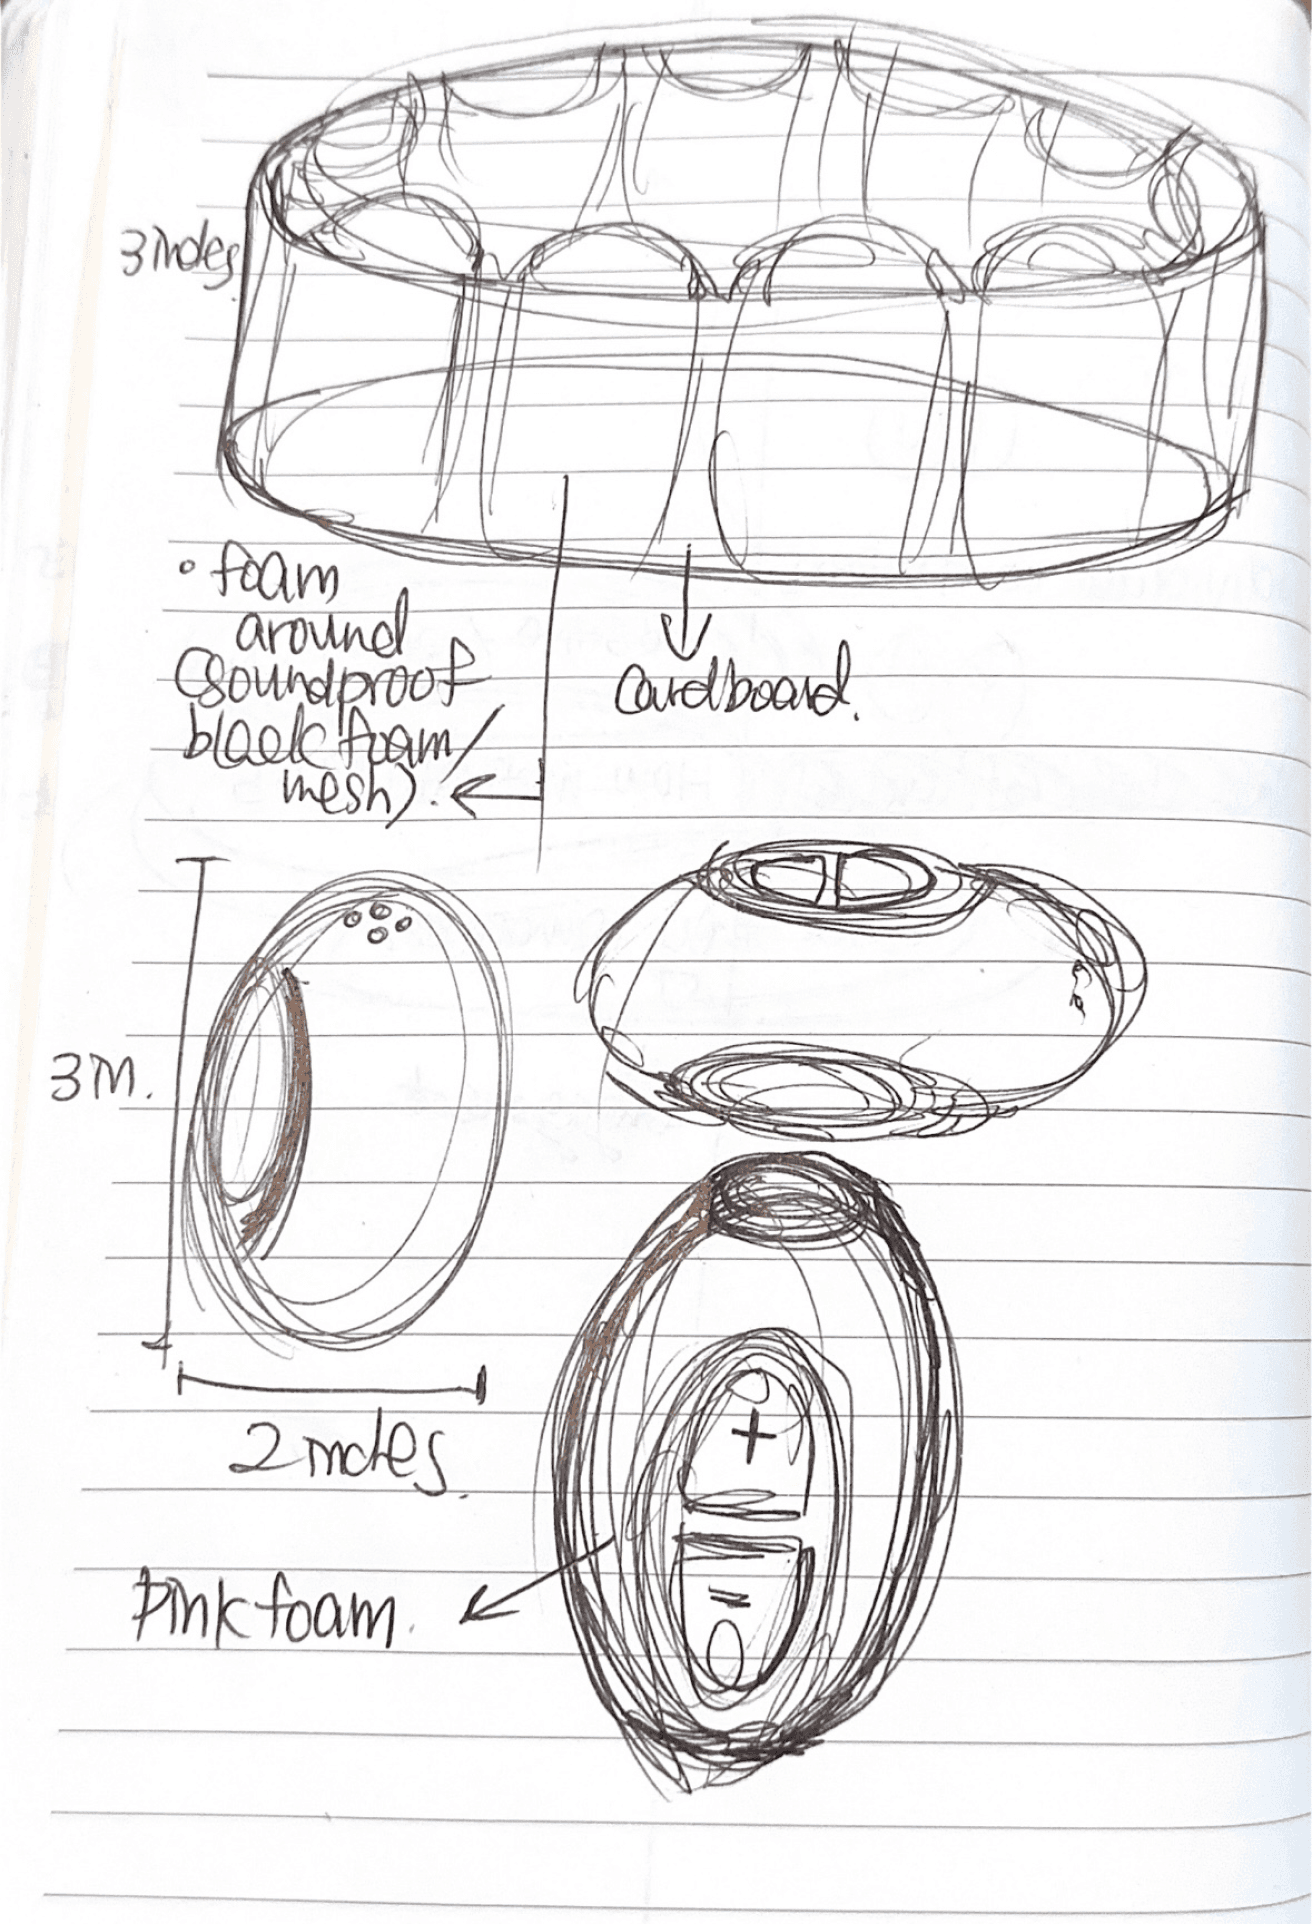 3 inches
• foam
around
(soundproof
black foam/
mesh).
cardboard.
3 in.
2 inches.
+
-
Pink foam.